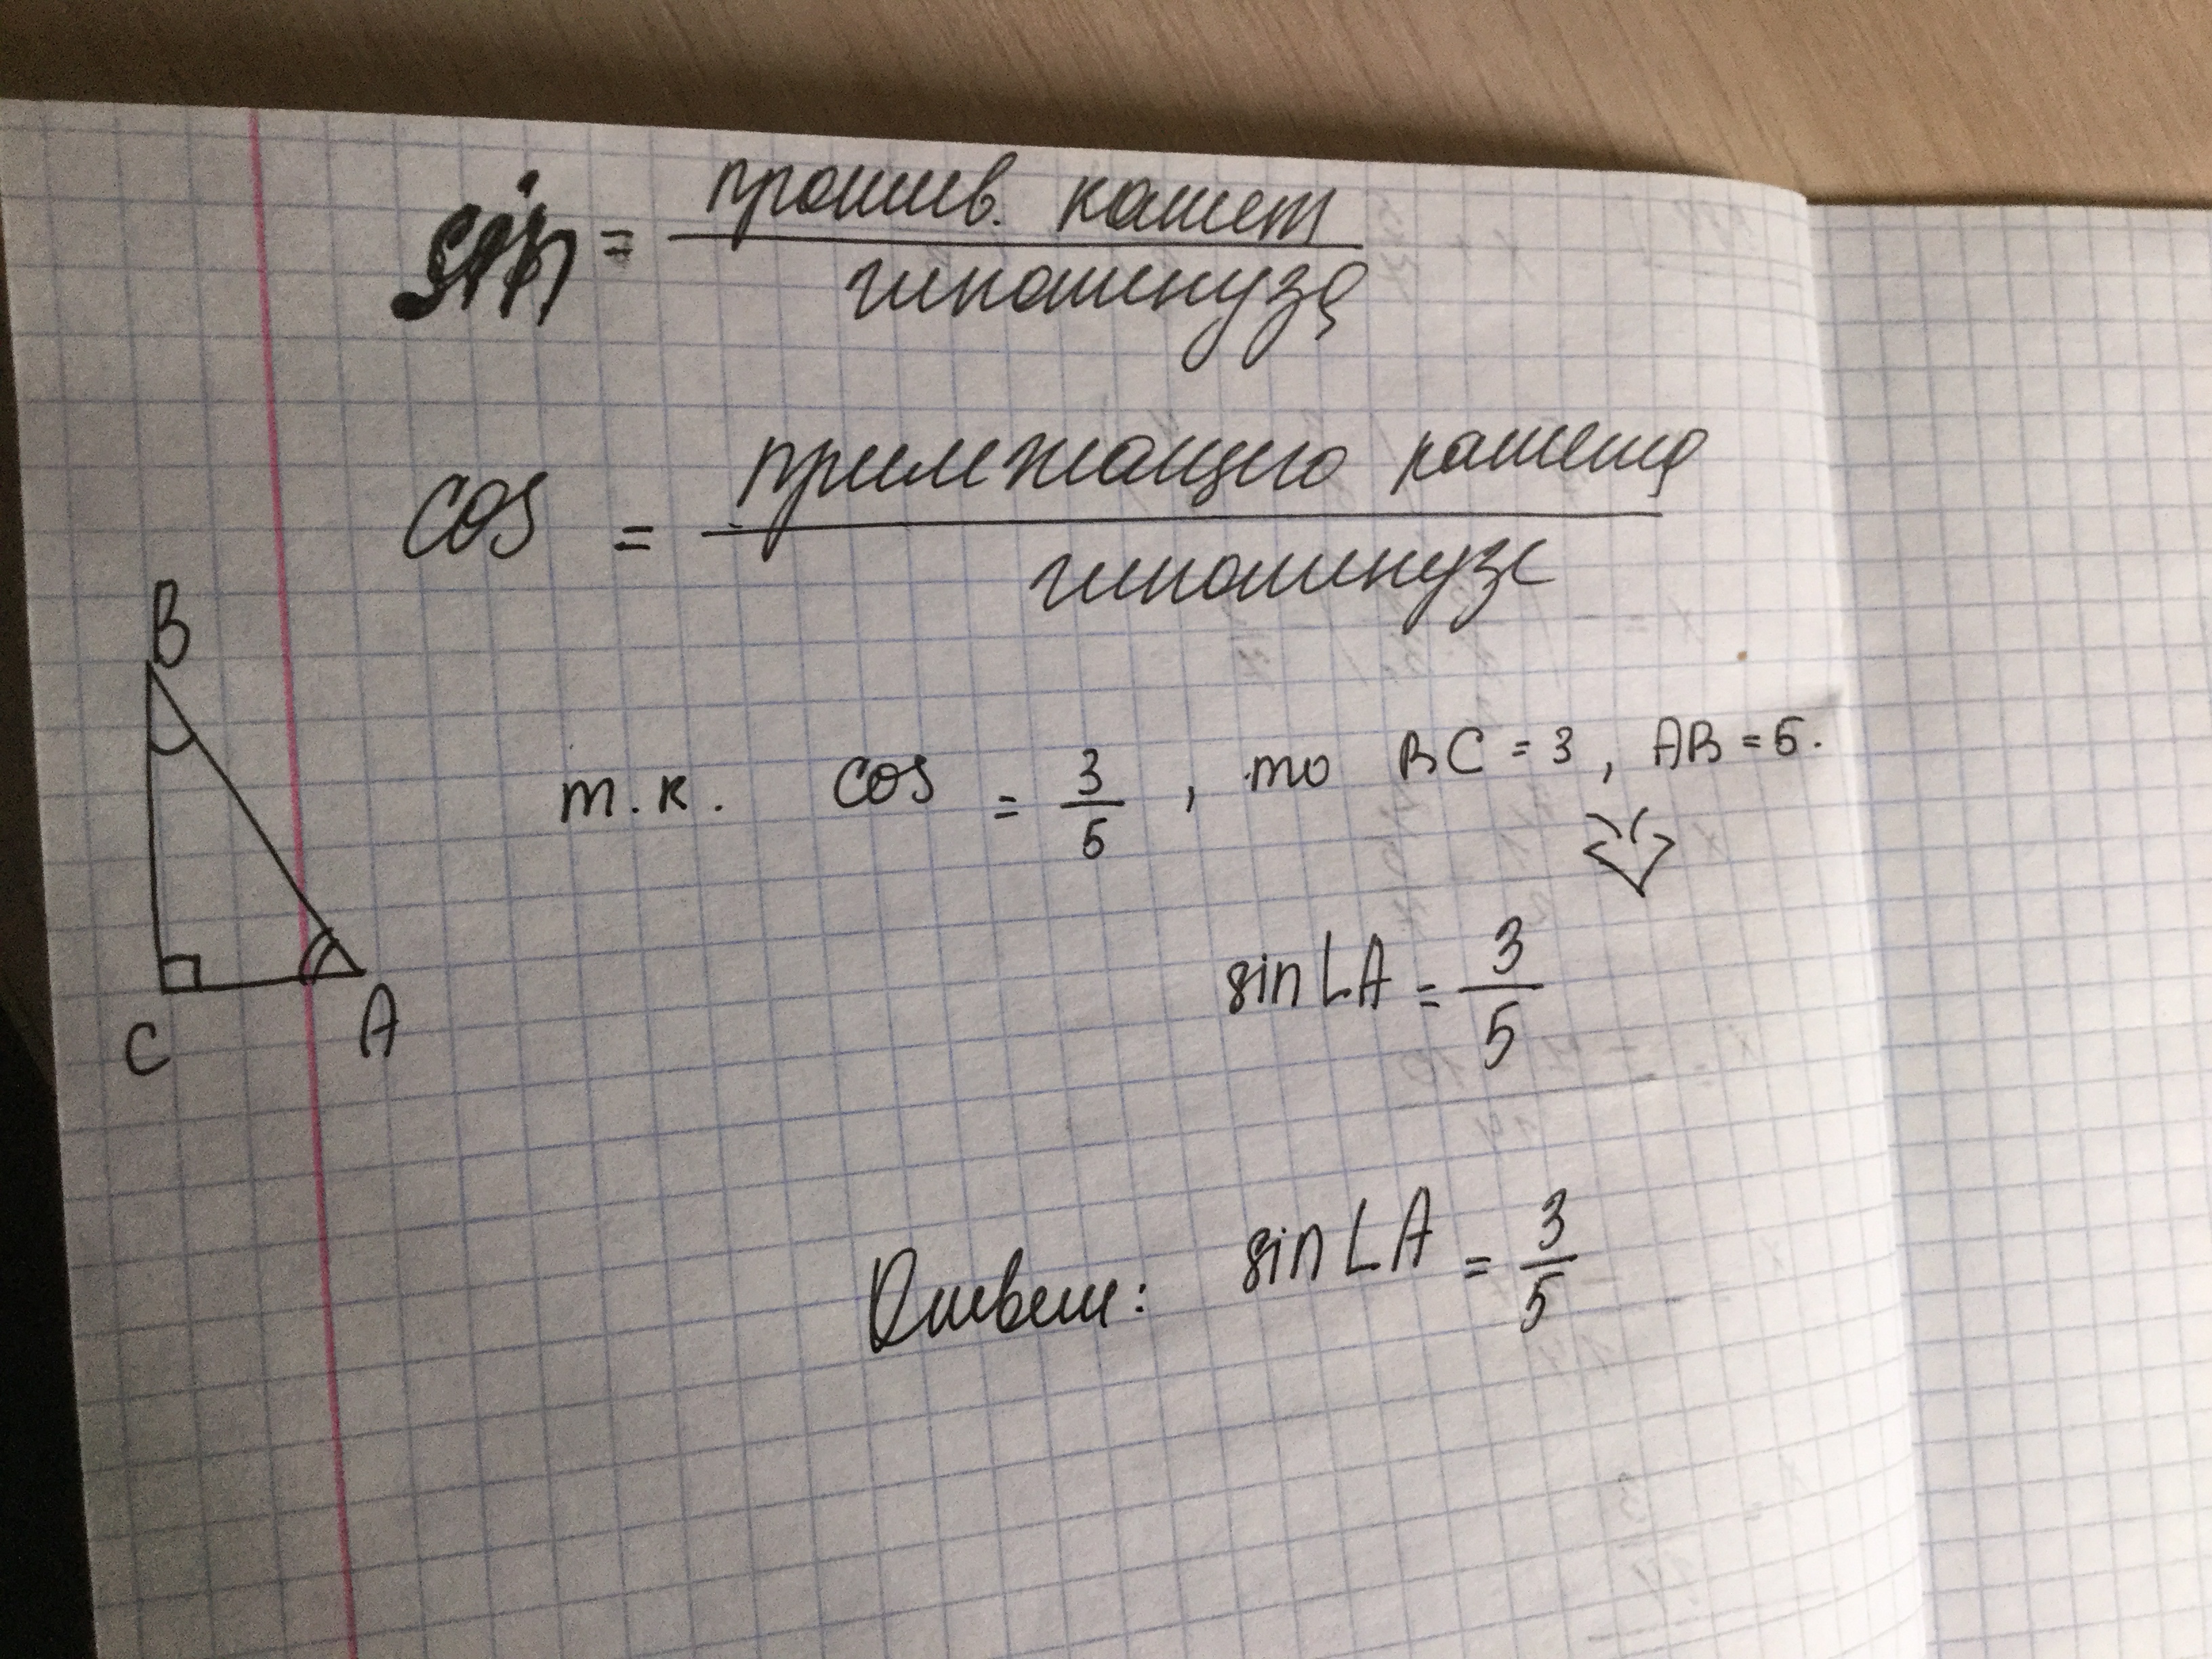 sin = против. катет / гипотенуза
cos = прилежащего катета / гипотенузе
B
т.к. cos = 3/5, то BC = 3, AB = 5.
sin∠A = 3/5
C A
Ответ: sin∠A = 3/5